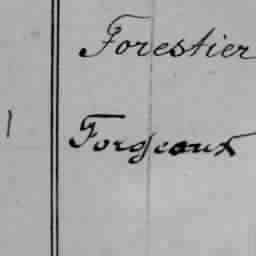 Forestier
Forgeaux